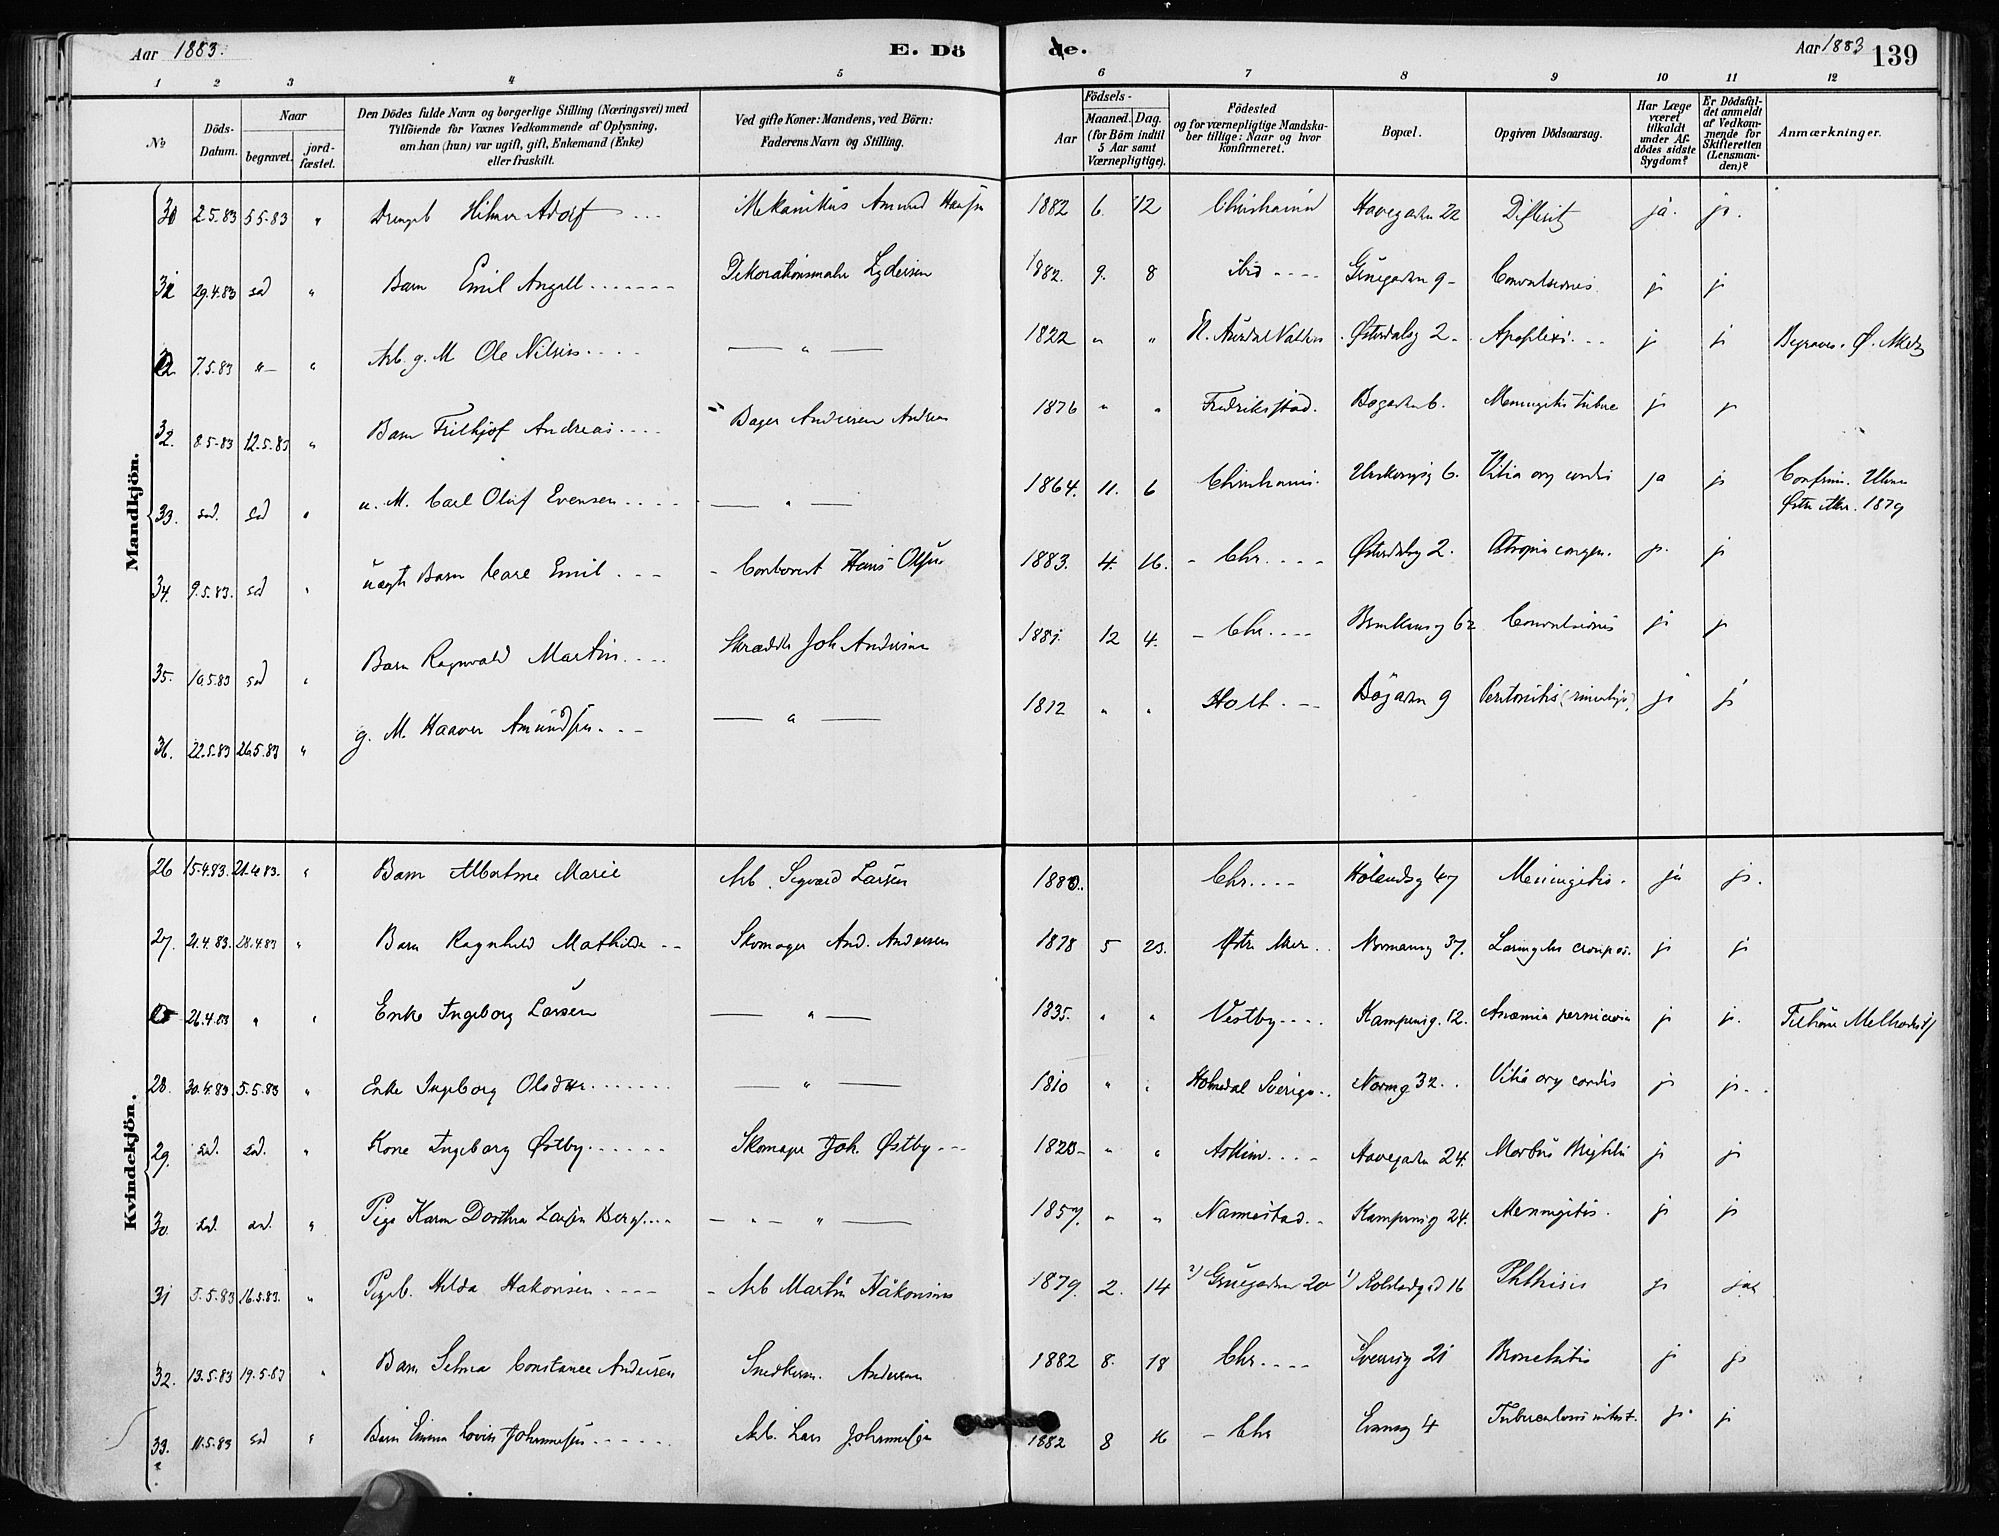 Aar 1883.
E. Dö
de.
Aar 1883
139
1 2 3 4 5 6 7 8 9 10 11 12
No
Döds-
Datum.
Naar
begravet.
jord-
fæstet.
Den Dödes fulde Navn og borgerlige Stilling (Næringsvei) med
Tilföiende for Voxnes Vedkommende af Oplysning,
om han (hun) var ugift, gift, Enkemand (Enke)
eller fraskilt.
Ved gifte Koner: Mandens, ved Börn:
Faderens Navn og Stilling.
Födsels-
Aar
Maaned.
Dag.
(for Börn indtil
5 Aar samt
Værnepligtige).
Födested
og for værnepligtige Mandska-
ber tillige: Naar og hvor
konfirmeret.
Bopæl.
Opgiven Dödsaarsag.
Har Læge
været
tilkaldt
under Af-
dödes sidste
Sygdom?
Er Dödsfal-
det anmeldt
af Vedkom-
mende for
Skifteretten
(Lensman-
den)?
Anmærkninger.
Mandkjön.
2.5.83 5.5.83 " Drengeb Hilmar Adolf Mekanikus Amund Hansen 1882 6. 12 Christiania Havegaden 22 Difterit ja. ja.
29.4.83 sad " Barn Emil Angell Dekorationsmaler Lydersen 1882. 9. 8 ibid Gruegaden 9 Convulsiones ja ja
7.5.83 " " Arb. g. M Ole Nilsen — " — 1822 " " N. Aurdal Valders Østerdalsg 2 Apoplexi ja ja Begraves Ø. Aker
32. 8.5.83 12.5.83 " Barn Frithjof Andreas Bager Andersen 1876 " " Fredriksstad. Bøgaden 6. Meningitis tuberc ja ja
33. sad. sad " u. M. Carl Oluf Evensen — " — 1864. 11. 6 Christiania. 6. Vitia org cordis ja ja Confirm.
Østre Aker. 1879
34. 9.5.83. sad " uægte Barn Carl Emil Hans Olsen 1883. 4. 16. Chr. Østerdalsg 2. Atropia congen. ja ja
35. 10.5.83 sad " Barn Ragnvald Martin Skrædder Joh Andersen 1881. 12 4. Chr. 62 Convulsiones ja ja
36. 22.5.83 26.5.83 " g. M. Haaver Amundsen — " — 1812 " " Holt Bøgaden 9 Peritonitis ja ja
Kvindekjön.
26 15.4.83. 21.4.83. " Barn Albertine Marie Arb. Sigvard Larsen 1880. Chr. Hölandsg 47 Meningitis. ja ja.
27. 21.4.83. 28.4.83 " Barn Ragnhild Mathilde Skomager And. Andersen 1878 5 23. Østre Aker Normannsg 37. Laringitis croupos. ja ja
26.4.83 " " Enke Ingeborg Larsen — " — 1835. " " Vestby Kampensg. 12. Anæmia perniciosa ja ja. Tilhører Methodist
28. 30.4.83. 5.5.83 " Enke Ingeborg Olsdtter — " — 1810 " " Holmedal Sverige Normg 32. Vitia org cordis ja ja.
29. sad. sad. " Kone Ingeborg Østby Skomager Joh. Østby 1820 " " Askim Havegaden 24. Morbus Brightii ja ja
30. sad. sad. " Pige Karen Dorthea Larsen Berg — " — 1857. " " Nannestad. Kampensg 24. Meningitis. ja ja
31 5.5.83 16.5.83. " Pigeb. Hilda Hakonsen Arb Martin Håkonsen 1879. 2. 14 2) Gruegaden 20 1) 16 Phthisis ja ja
32. 13.5.83 19.5.83 " Barn Selma Constance Andersen Snedkersv. Andersen 1882 8. 18 Chr. Sverresg 21 Bronchitis ja ja
33. 11.5.83 sad " Barn Emma Lovise Johannesen Arb. Lars Johannesen 1882 8 16 Chr 4 Tuberculosis intest. ja. ja